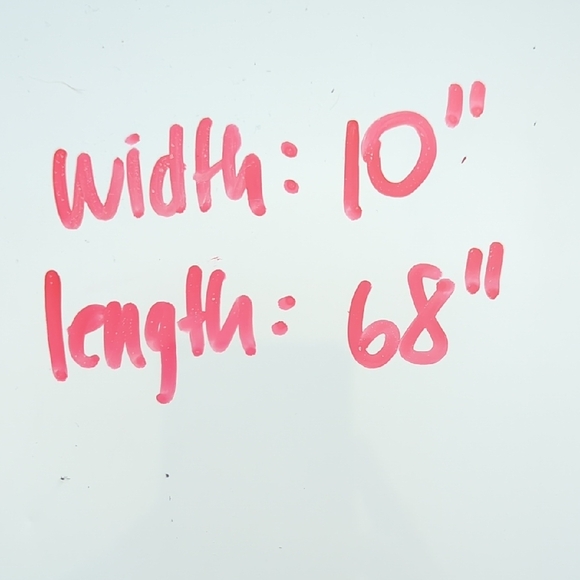 width: 10"
length: 68"